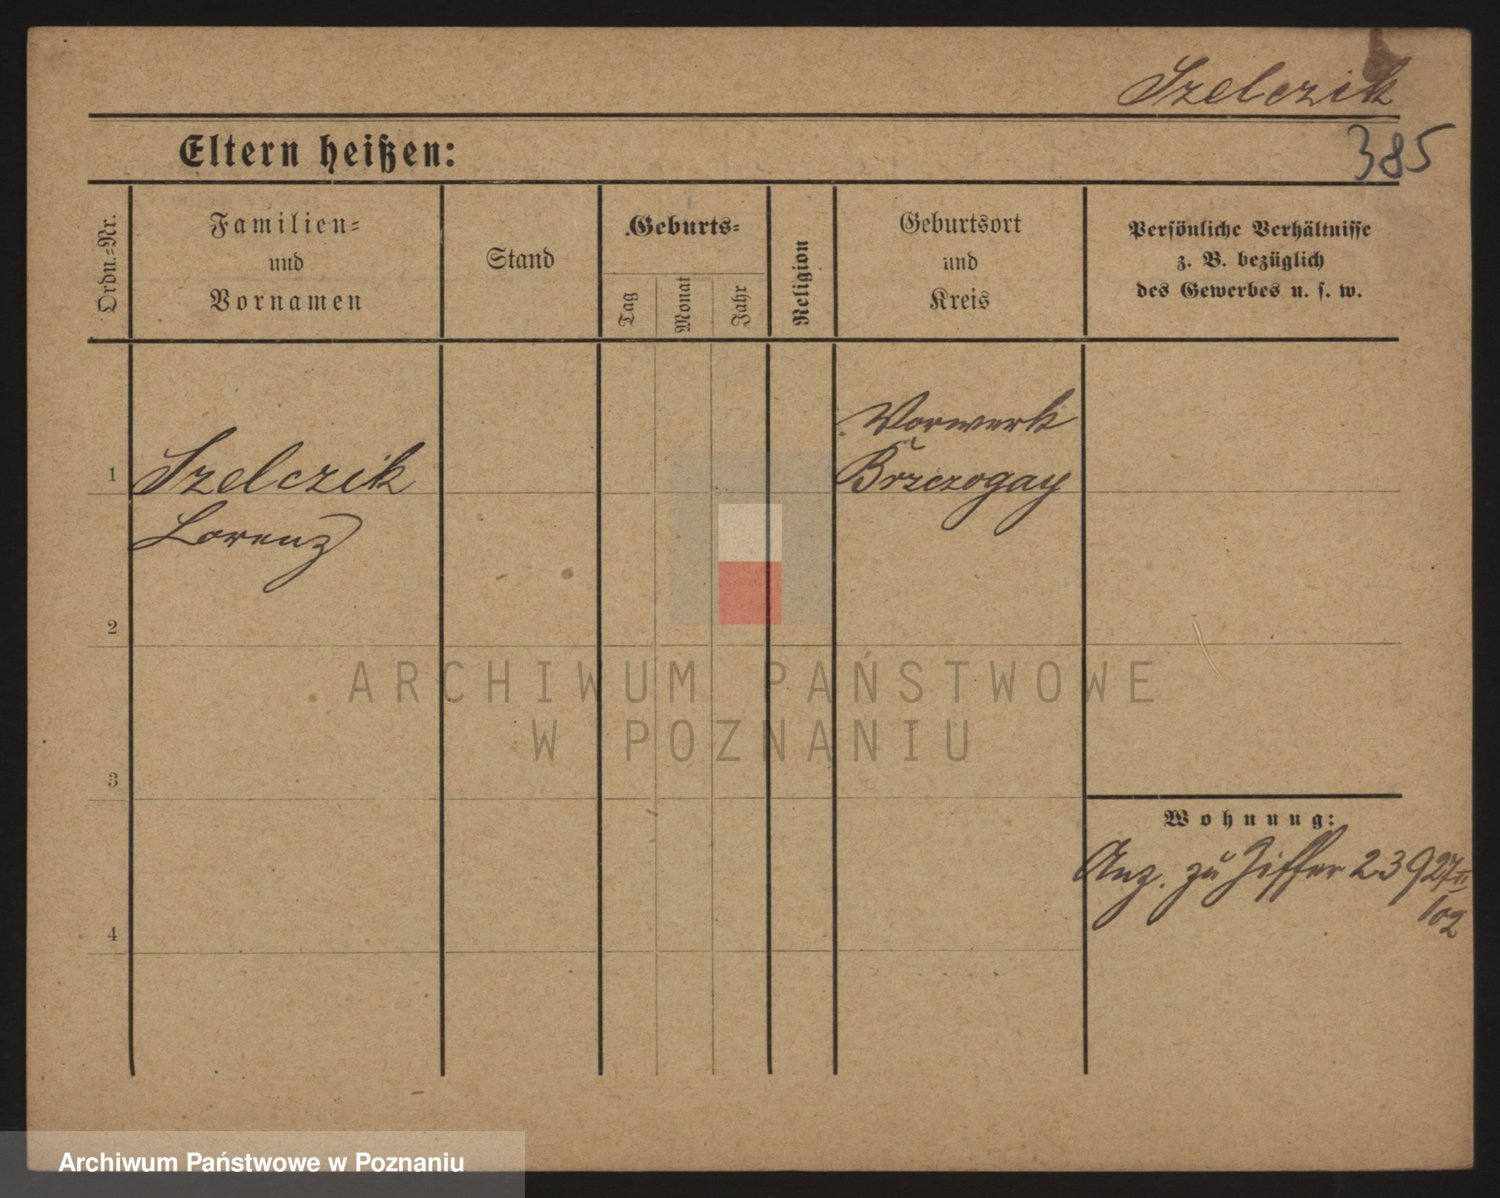 Szelczik
385
Eltern heißen:
Ordn.-Nr.
Familien-
und
Vornamen
Stand
Geburts-
Tag
Monat
Jahr
Religion
Geburtsort
und
Kreis
Persönliche Verhältnisse
z. B. bezüglich
des Gewerbes u. s. w.
1
Szelczik
Lorenz
Vorwerk
Brzczogay
2
3
4
Wohnung:
Anz. zu Ziffer 239 27/II
102
ARCHIWUM PAŃSTWOWE
W POZNANIU
Archiwum Państwowe w Poznaniu